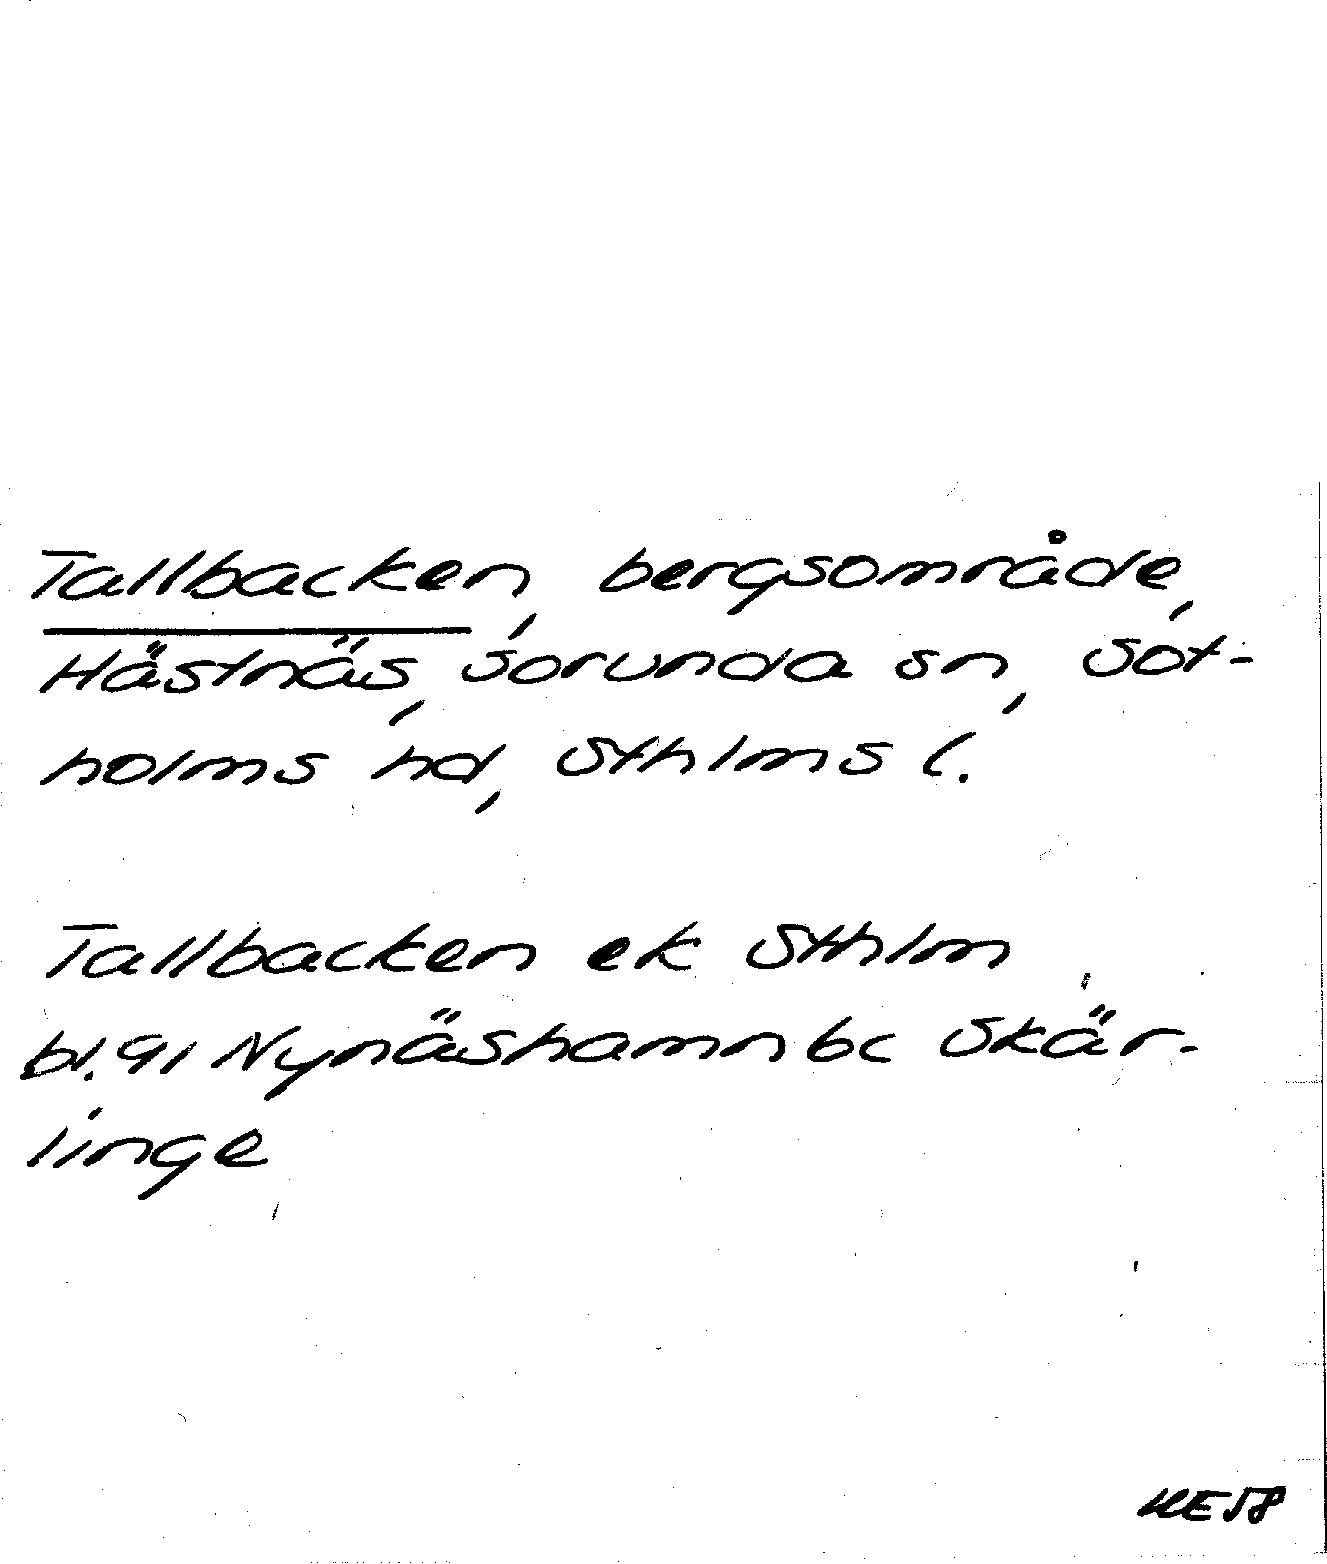 Tallbacken, bergsområde,
Hästnäs, Sorunda sn, Sot-
holms hd, Sthlms l.
Tallbacken ek Sthlm
bl. 91 Nynäshamn bc Skär-
linge